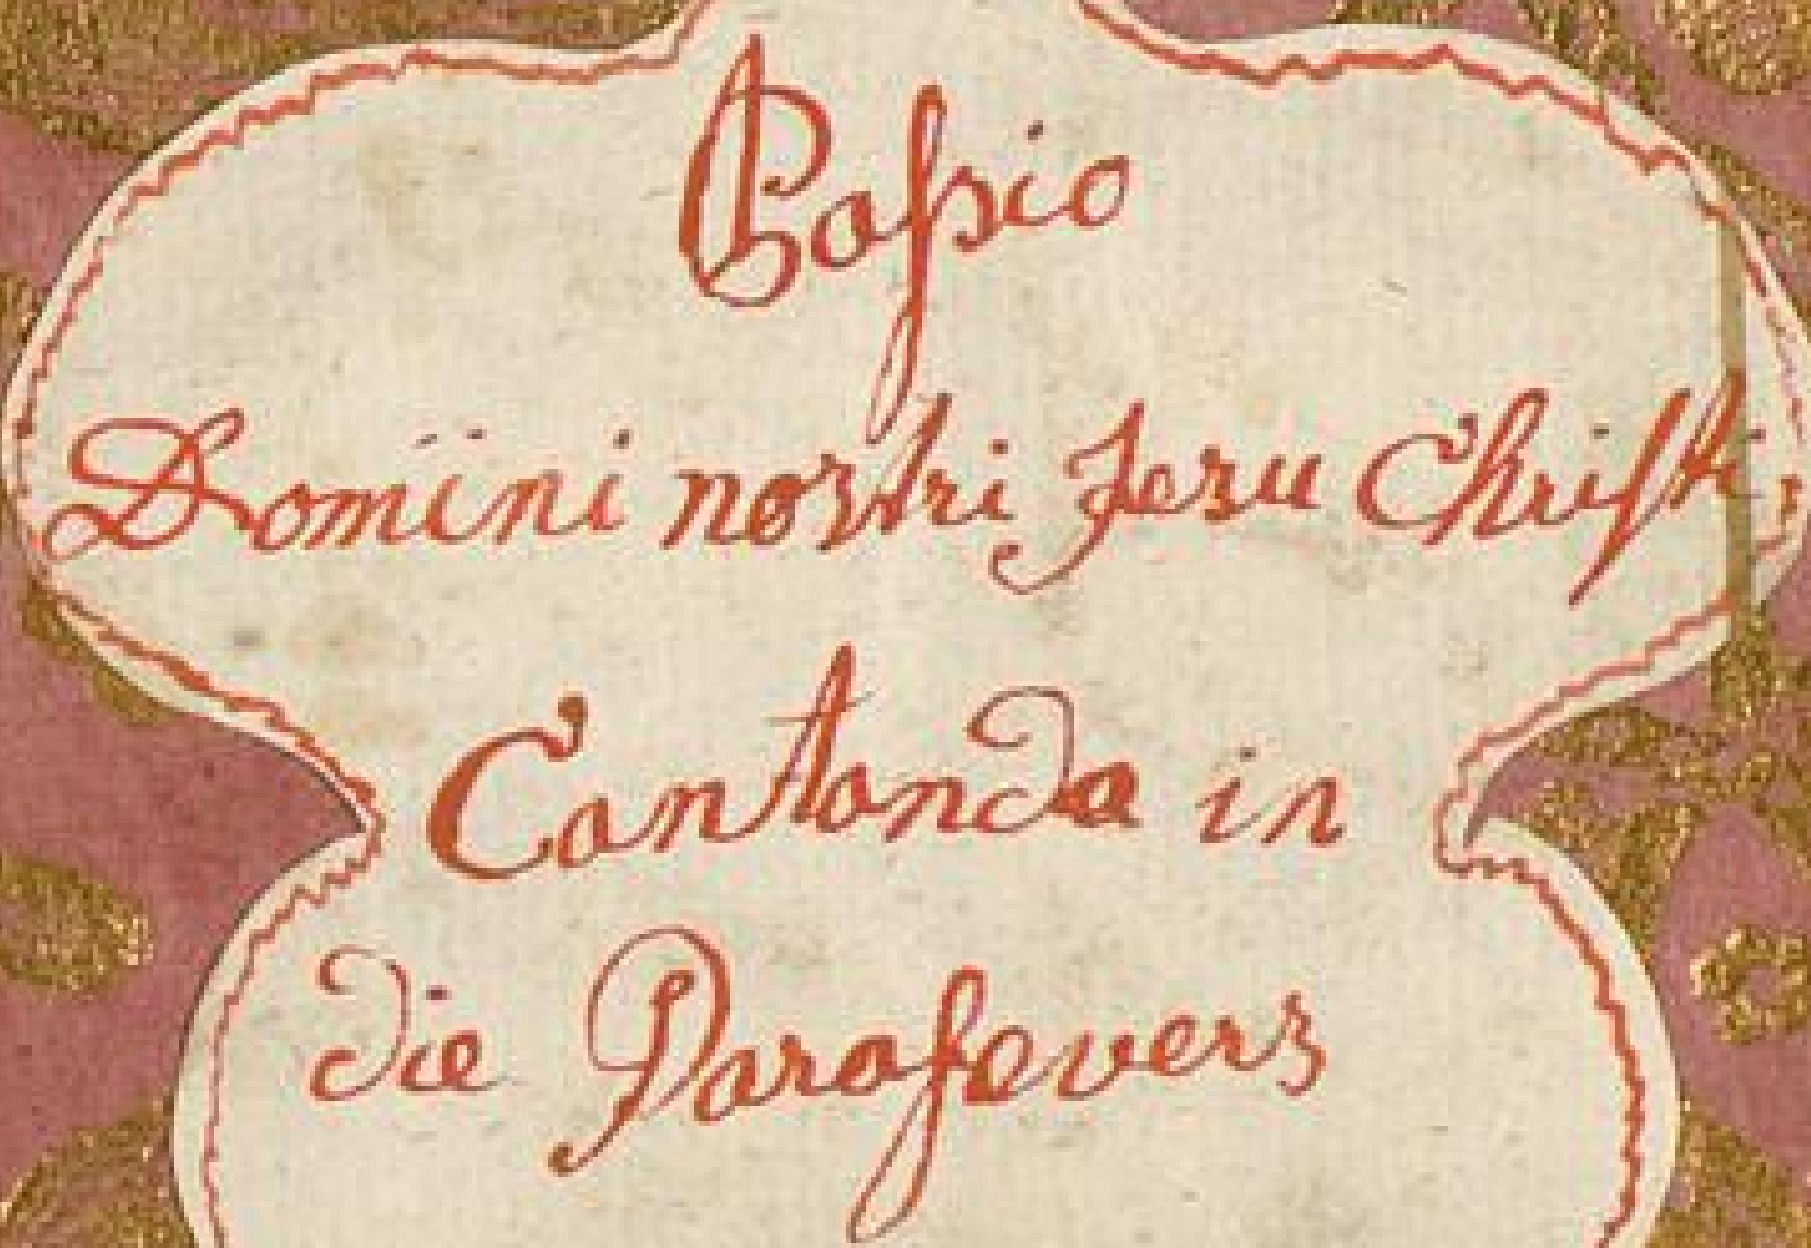 Paſsio
Domini nostri Jesu Chriſti
Cantanda in
die Paraſevers